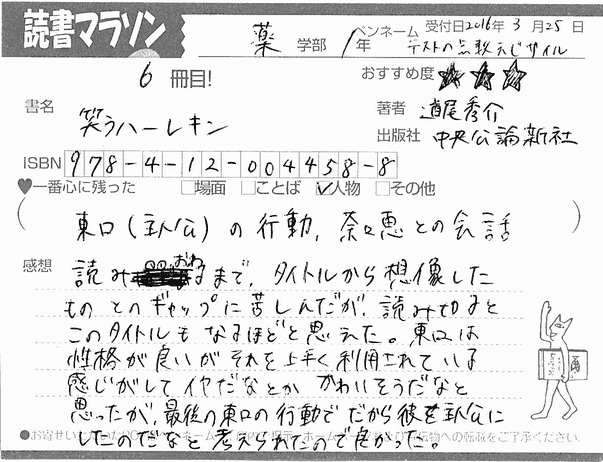 読書マラソン
薬 学部 1年
ペンネーム 受付日2016年 3月25日
テストの点数えじサイル
6 冊目!
おすすめ度 ★★★
書名 笑うハーレキン
著者 道尾秀介
出版社 中央公論新社
ISBN 978-4-12-004458-8
♥一番心に残った □場面 □ことば ☑人物 □その他
(東口(主人公)の行動,奈々恵との会話)
感想
読みおわるまで,タイトルから想像した
ものとのギャップに苦しんだが,読み切ると
このタイトルもなるほどと思えた。東口は
性格が良いがそれを上手く利用されている
感じがしてイヤだなとか かわいそうだなと
思ったが,最後の東口の行動でだから彼を主人公に
したのだなと考えられたので良かった。
●お寄せいただいたPO
ペンネーム
ホーム
への転載をご了承ください。